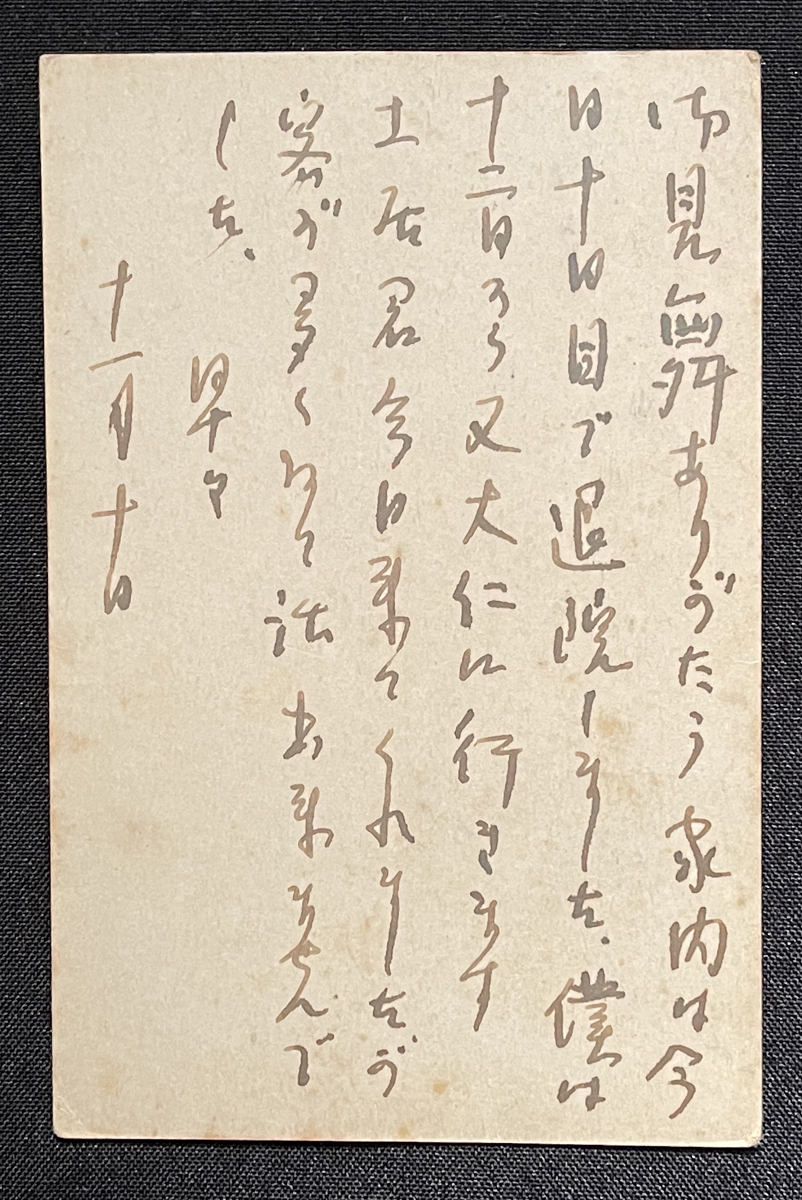 御見舞ありがたう家内は今
日十日目で退院しました、僕は
十二日から又大仁に行きます
土居君今日来てくれましたが
客が多くありて話出来ませんで
した、
早々
十一月十日